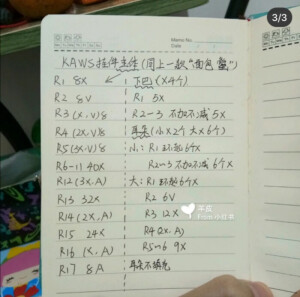 3/3
Memo No.
Date
KAWS挂件主体(同上一款"面包蟹")
R1 8X
R2 8V
R3 (X,V)8
R4 (2X,V)8
R5 (3X,V)8
R6-11 40X
R12 (3X,A)
R13 32X
R14 (2X,A)
R15 24X
R16 (X,A)
R17 8A
下巴(X4个)
R1 5X
R2-3 不加不减 5X
耳朵(小X2个 大X6个)
小: R1 环起6个X
R2-3 不加不减 6个X
大: R1环起6个X
R2 6V
R3 12X
R4 (2X,A)
R5-6 9X
耳朵不填充
小红书